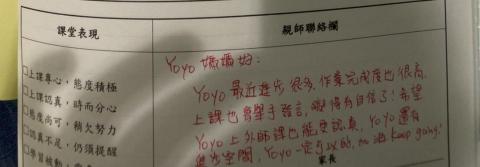 課堂表現
親師聯絡欄
□上課專心，態度積極
□上課認真，時而分心
□態度尚可，稍欠努力
□認真不足，仍須提醒
□學習被動
Yoyo 媽媽好：
Yoyo 最近進步很多，作業完成度也很高，
上課也會舉手發言，變得有自信了！希望
Yoyo 上外師課也能更認真，Yoyo 還有
進步空間，Yoyo 一定可以的，keep going!
家長